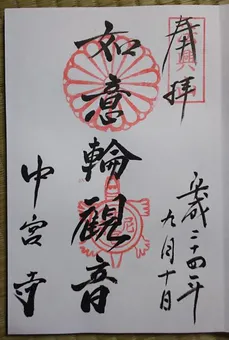 奉拝
平成二十四年
九月十日
如意輪觀音
中宮寺